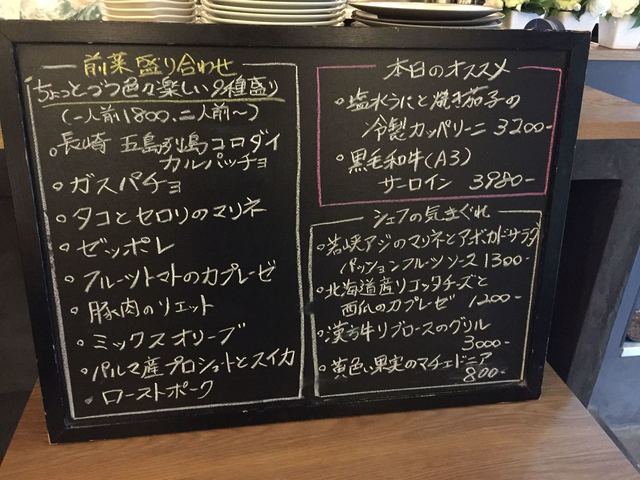 前菜盛り合わせ
ちょっとづつ色々楽しい9種盛り
(一人前1800、二人前〜)
。長崎 五島列島コロダイ
カルパッチョ
。ガスパチョ
。タコとセロリのマリネ
。ゼッポレ
。フルーツトマトのカプレーゼ
。豚肉のリエット
。ミックスオリーブ
。パルマ産プロシュートとスイカ
。ローストポーク
本日のオススメ
・塩水うにと焼き茄子の
冷製カッペリーニ 3200-
・黒毛和牛(A3)
サーロイン 3980-
シェフの気まぐれ
。若狭アジのマリネとアボカドサラダ
パッションフルーツソース 1300-
・北海道産リコッタチーズと
西瓜のカプレーゼ 1200-
・漢方牛リブロースのグリル
3000-
・黄色い果実のマチェドニア
800-